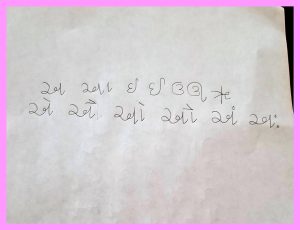 અ આ ઇ ઈ ઉ ઊ ઋ
એ ઐ ઓ ઔ અં અઃ